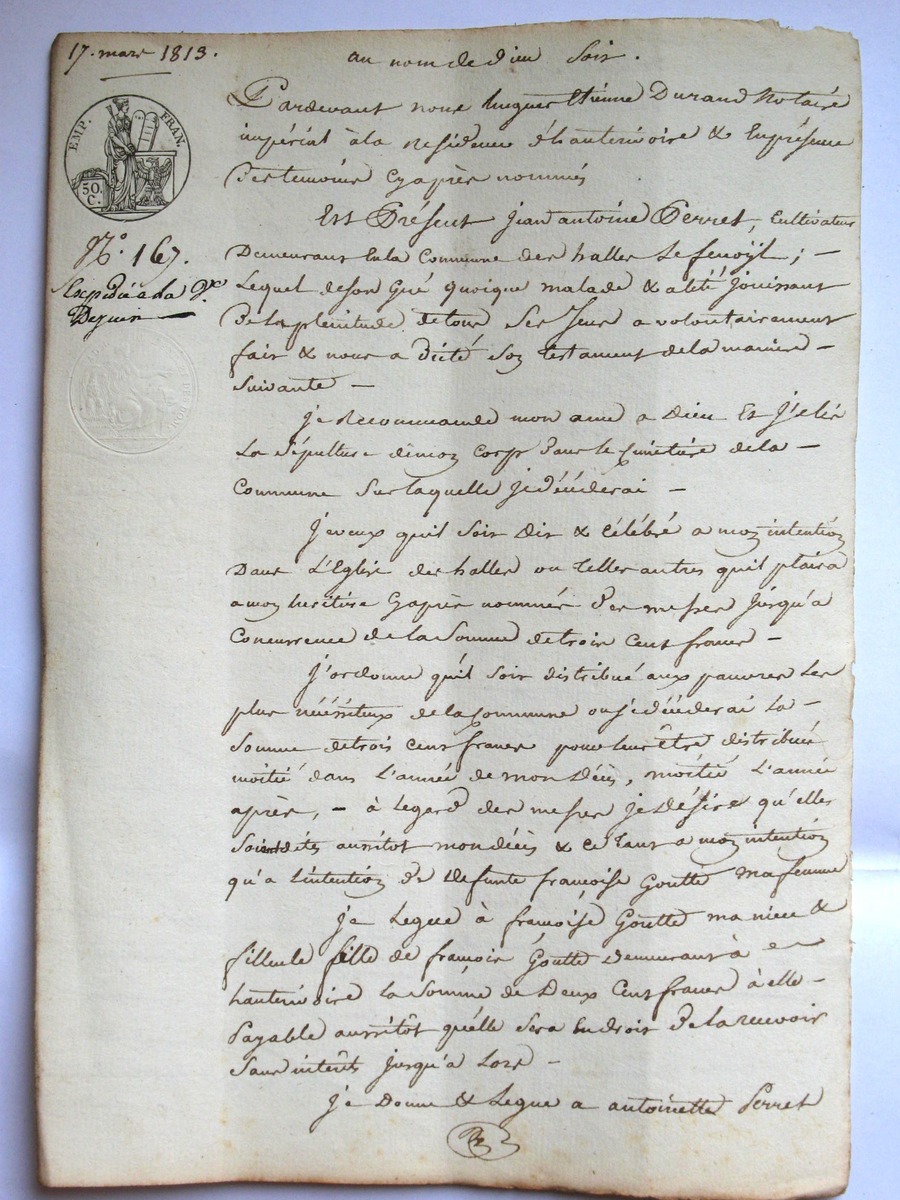 17. mars 1813.
au nom de dieu soit.
EMP. FRAN.
50.
C.
N.° 167.
Expédié a la
Pardevant nous hugues Etienne Durand Notaire
impérial à la résidence d'hauterivoire & En présence
Des temoins cyaprès nommés
Est Présent jean antoine Perret, Cultivateur
Demeurant En la Commune des halles Le fenoÿl; -
Lequel de son Gré quoique malade & alité jouissant
De la plenitude de tous ses sens a volontairement
fait & nous a dicté son testament de la maniere -
Suivante -
je Recommande mon ame a Dieu Et j'elis
La Sépulture de mon Corp dans le Cimetière de la -
Commune sur laquelle je décéderai -
je veux qu'il soit Dit & Célébré a mon intention
Dans L'Eglise des halles ou telles autres qu'il plaira
a mon heritière cyaprès nommée des messes jusqu'a
Concurrence de la Somme de trois Cent francs -
j'ordonne qu'il soit distribué aux pauvres les
plus nécéssiteux de la Commune ou je décéderai la -
Somme de trois Cent francs pour leur être distribuée
moitié dans L'année de mon Décès, moitié L'année
après, - à Legard des messes je Désire qu'elles
Soient dites aussitot mon décès & ce tant a mon intention
qu'a L'intention de defunte françoise Goutte ma femme
je Legue à françoise Goutte ma niece &
filleule fille de françois Goutte Demeurant à
hauterivoire la Somme de Deux Cent francs à elle -
Payable aussitôt qu'elle sera En droit de la recevoir
Sans intérêts jusqu'a Lors -
je Donne & Legue a antoinette Perret